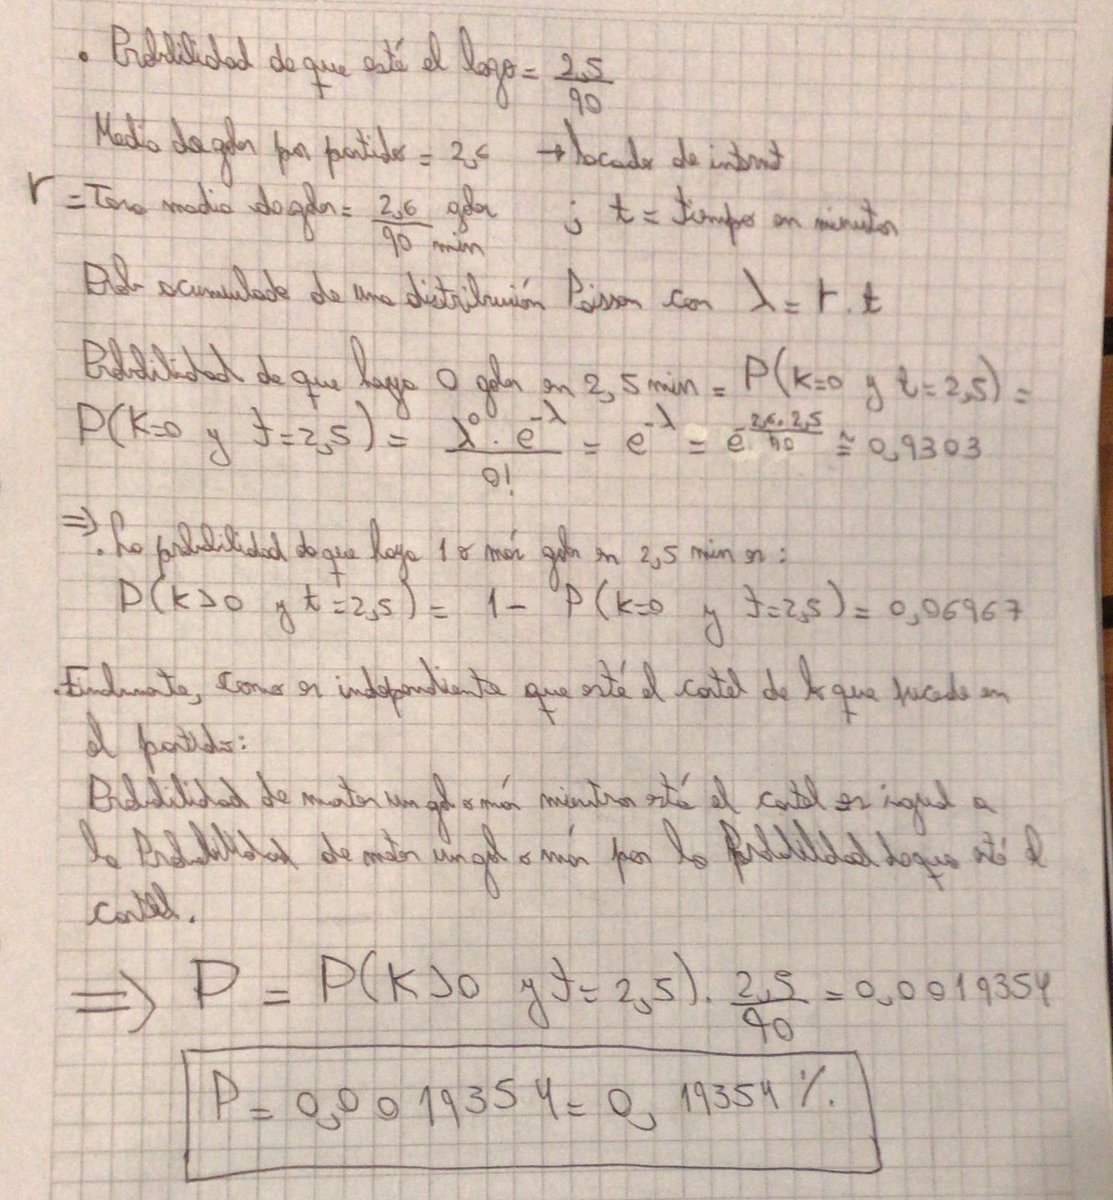 . Probabilidad de que esté el logo = 2,5/90
Media de goles por partido = 2,6 → sacado de internet
r = Tasa media de goles = 2,6/90 goles/min ; t = tiempo en minutos
Prob acumulada de una distribución Poisson con λ = r . t
Probabilidad de que haya 0 goles en 2,5 min = P(K=0 y t=2,5) =
P(K=0 y t=2,5) = λ⁰ · e^-λ / 0! = e^-λ = e^-(2,6·2,5/90) ≅ 0,9303
⇒ . La probabilidad de que haya 1 o más goles en 2,5 min es:
P(K>0 y t=2,5) = 1 - P(K=0 y t=2,5) = 0,06967
. Finalmente, como es independiente que esté el cartel de lo que sucede en
el partido:
Probabilidad de meter un gol o más mientras esté el cartel es igual a
la Probabilidad de meter un gol o más por la probabilidad de que esté el
cartel.
⇒ P = P(K>0 y t=2,5) . 2,5/90 = 0,0019354
P = 0,0019354 = 0,19354 %.